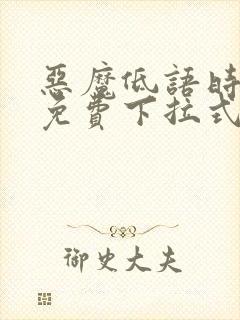 惡魔低語時
免費下拉式
御史大夫